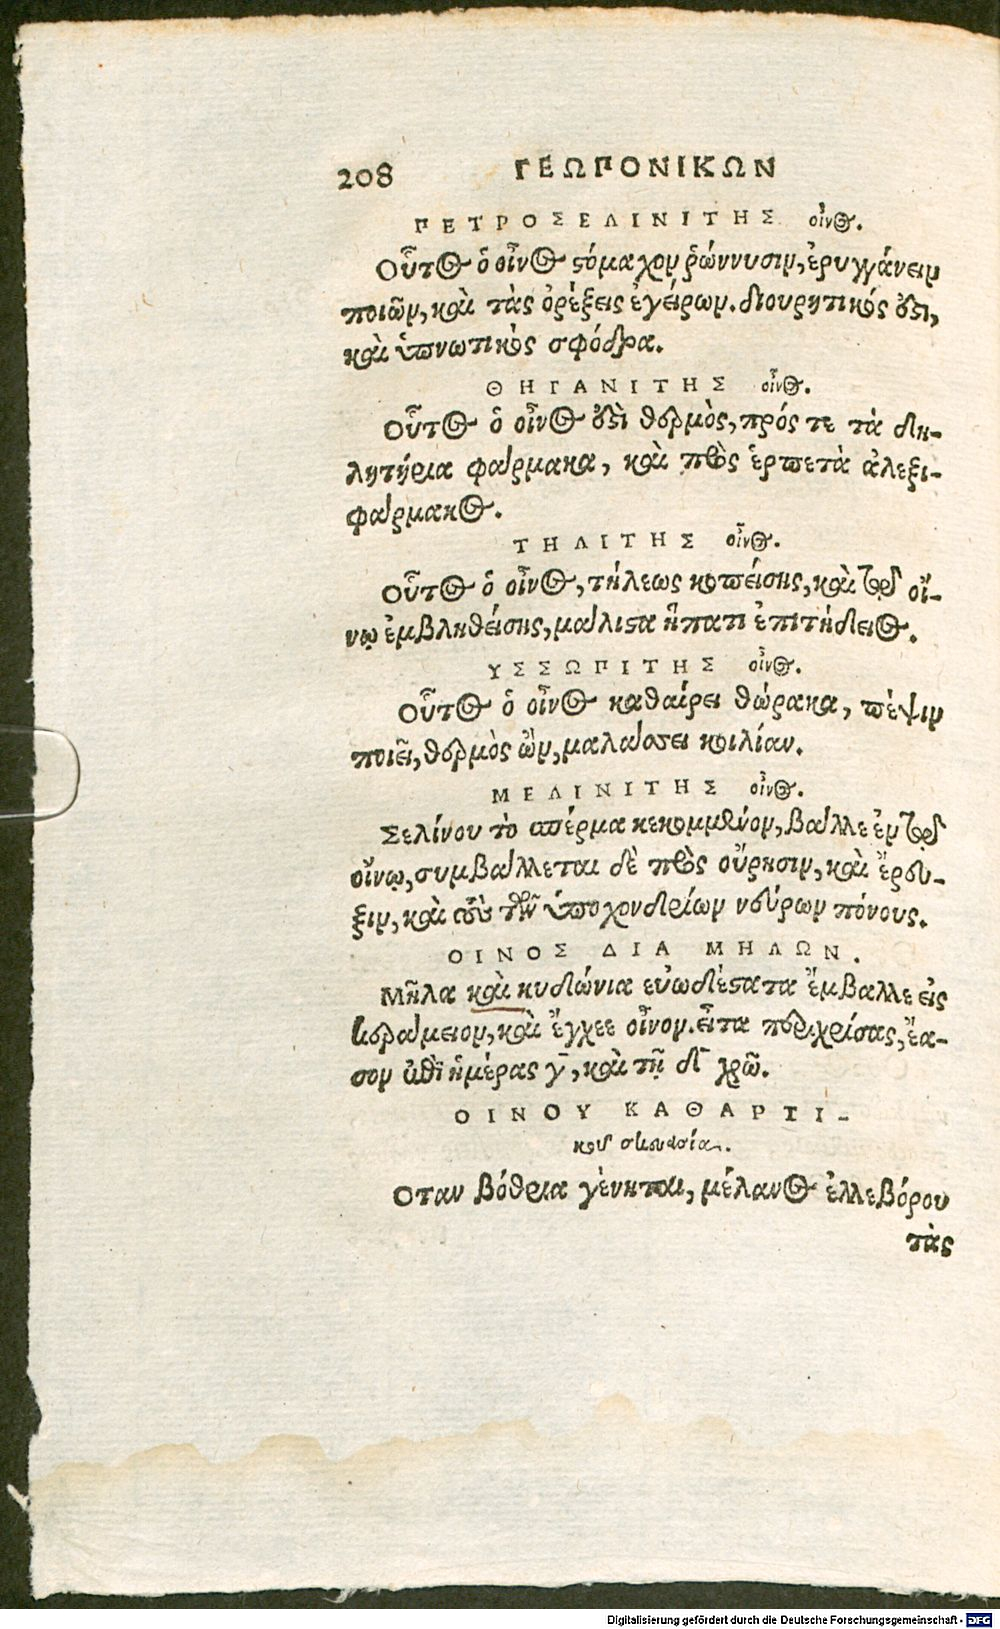 208 ΓΕΩΠΟΝΙΚΩΝ
ΠΕΤΡΟΣΕΛΙΝΙΤΗΣ οἶνος.
Οὗτος ὁ οἶνος στόμαχον ῥώννυσιν, ἐρυγγάνειν
ποιῶν, καὶ τὰς ὀρέξεις ἐγείρων. διουρητικός ἐστι,
καὶ ὑπνωτικὸς σφόδρα.
ΘΗΓΑΝΙΤΗΣ οἶνος.
Οὗτος ὁ οἶνος ἐστὶ θερμὸς, πρός τε τὰ δη-
λητήρια φάρμακα, καὶ πρὸς ἑρπετὰ ἀλεξι-
φάρμακος.
ΤΗΛΙΤΗΣ οἶνος.
Οὗτος ὁ οἶνος, τήλεως κοπείσης, καὶ τῷ οἴ-
νῳ ἐμβληθείσης, μάλιστα ἥπατι ἐπιτήδειος.
ΥΣΣΩΠΙΤΗΣ οἶνος.
Οὗτος ὁ οἶνος καθαίρει θώρακα, πέψιν
ποιεῖ, θερμὸς ὢν, μαλάσσει κοιλίαν.
ΜΕΛΙΝΙΤΗΣ οἶνος.
Σελίνου τὸ σπέρμα κεκομμένον, βάλλε ἐν τῷ
οἴνῳ, συμβάλλεται δὲ πρὸς οὔρησιν, καὶ ἔρευ-
ξιν, καὶ τοὺς τῶν ὑποχονδρίων νεύρων πόνους.
ΟΙΝΟΣ ΔΙΑ ΜΗΛΩΝ.
Μῆλα καὶ κυδώνια εὐωδέστατα ἔμβαλλε εἰς
κεράμειον, καὶ ἔγχεε οἶνον. εἶτα περιχρίσας, ἔα-
σον ἐπὶ ἡμέρας γ̄, καὶ τῇ δ̄ χρῶ.
ΟΙΝΟΥ ΚΑΘΑΡΤΙ-
κοῦ σκευασία.
Οταν βόθρια γένηται, μέλανος ἐλλεβόρου
τὰς
Digitalisierung gefördert durch die Deutsche Forschungsgemeinschaft - DFG